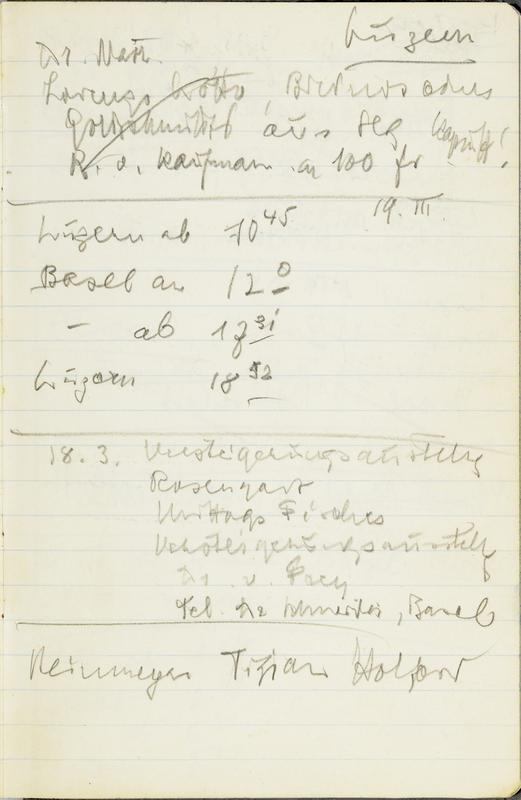 Luzern
Dr. Nath.
Lorenzo Lotto, Bildnis eines
Goldschmieds aus Slg
R. v. Kaufmann an 100 fr
19. III.
Luzern ab 10 45
Basel an 12 0
– ab 17 31
Luzern 18 52
18.3. Versteigerungsausstellg
Rosengart
Mittags Fischer
Versteigerungsausstellg
Dr. v. Frey
Tel. Dr Schneider, Basel
Reinmeyer Tizian Holzer